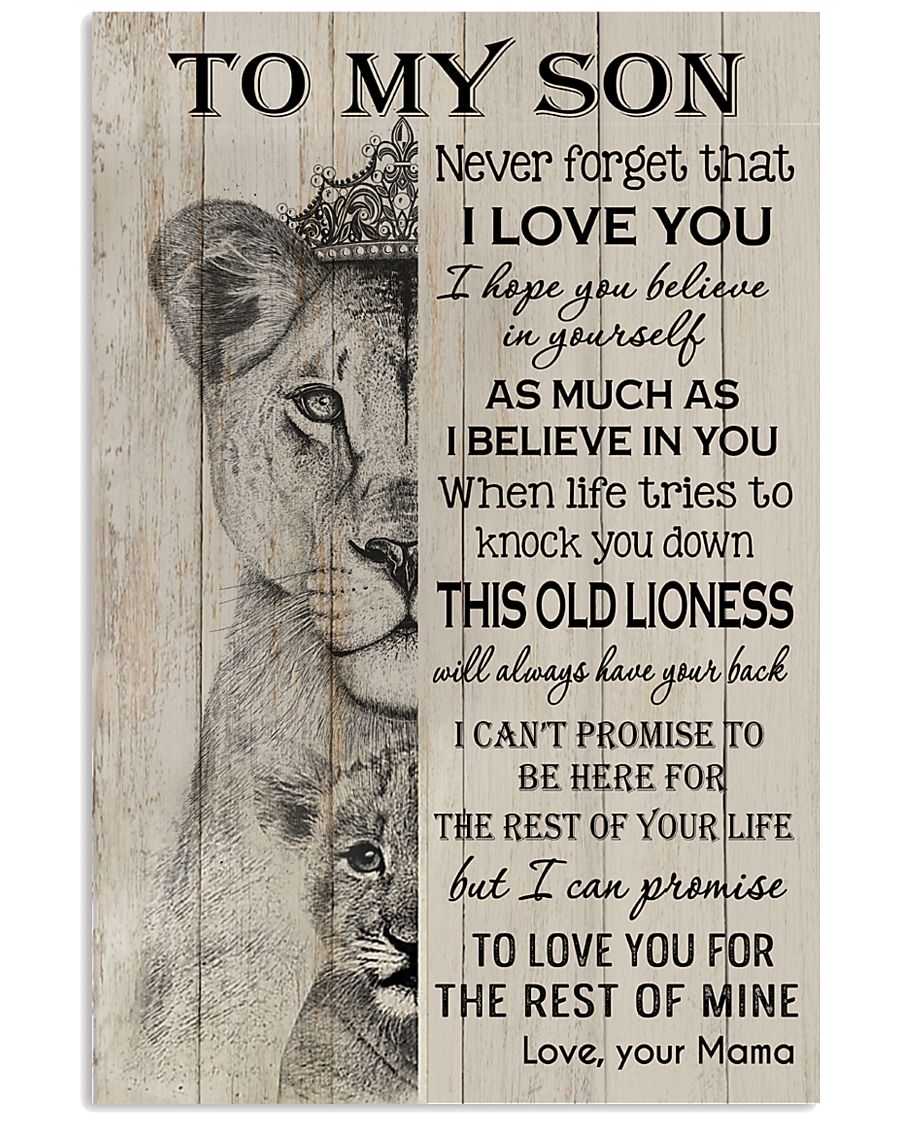 TO MY SON
Never forget that
I LOVE YOU
I hope you believe
in yourself
AS MUCH AS
I BELIEVE IN YOU
When life tries to
knock you down
THIS OLD LIONESS
will always have your back
I CAN'T PROMISE TO
BE HERE FOR
THE REST OF YOUR LIFE
but I can promise
TO LOVE YOU FOR
THE REST OF MINE
Love, your Mama